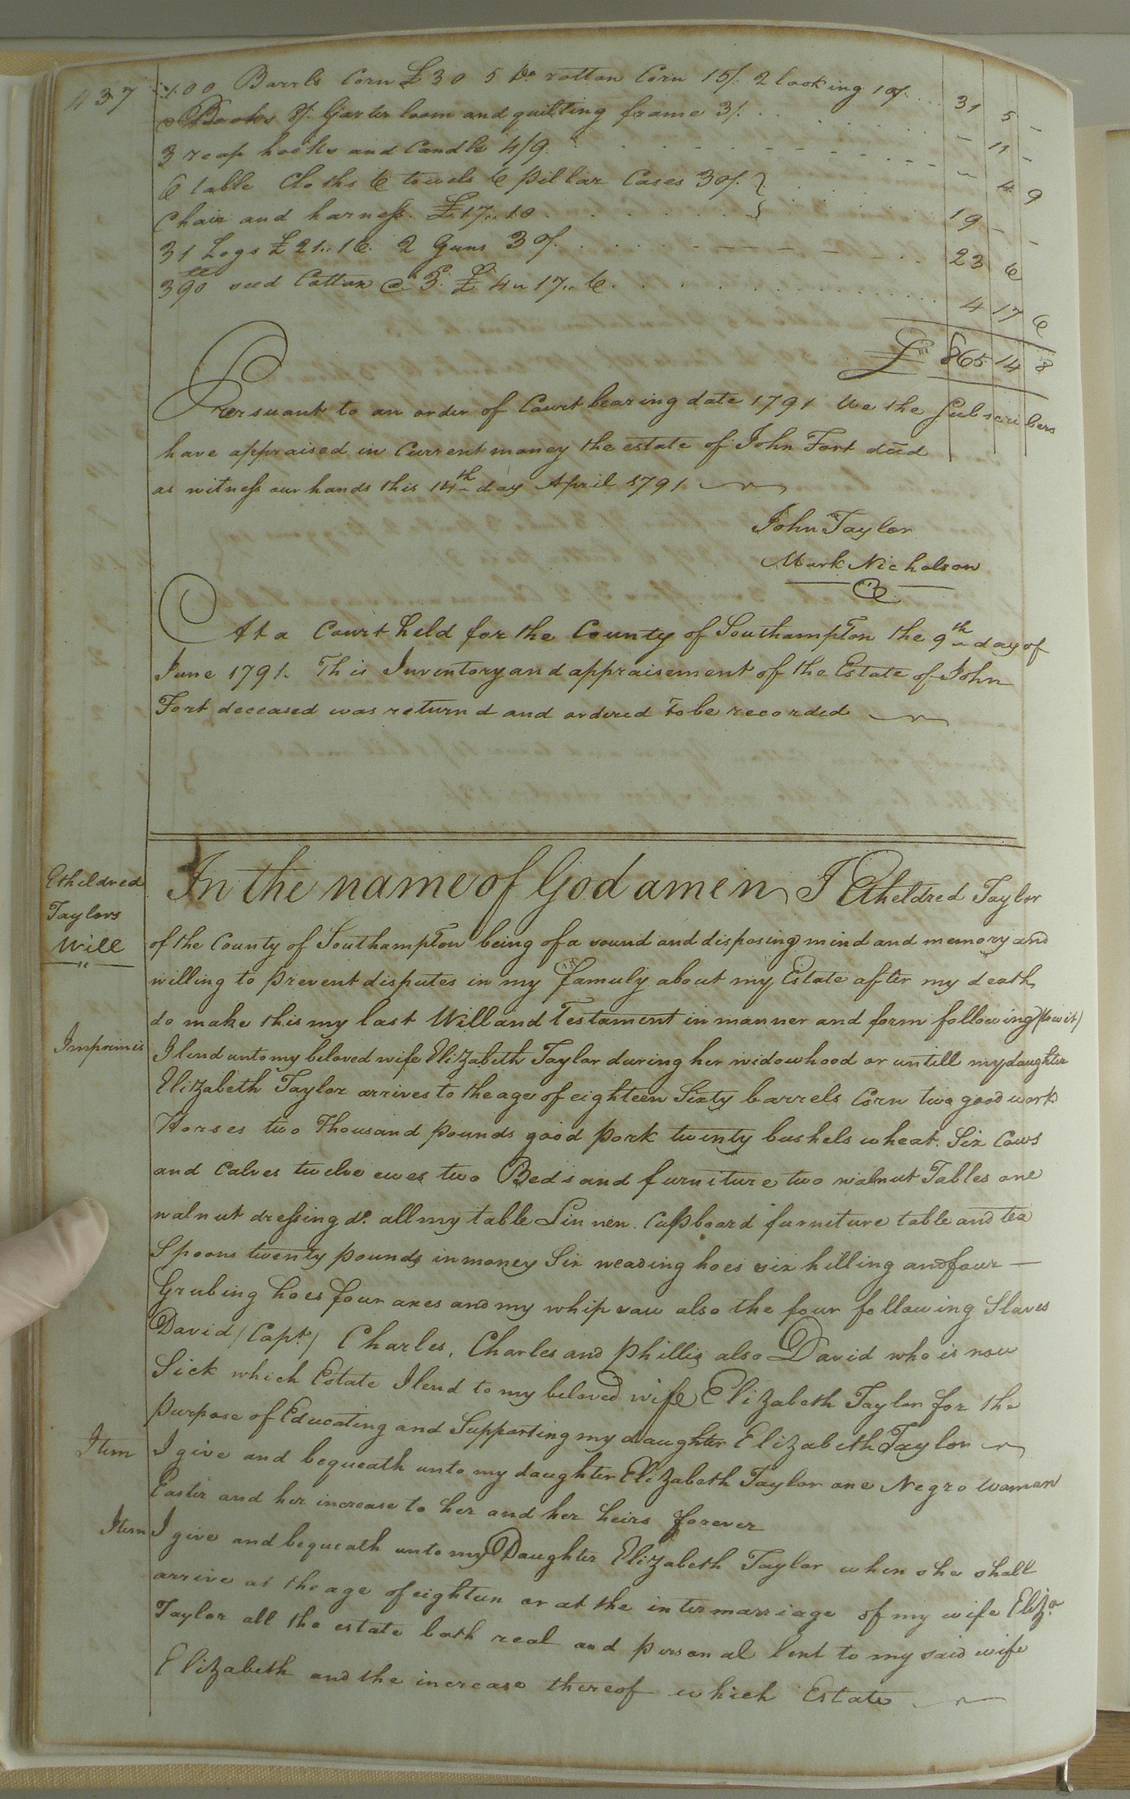 437
100 Barrls Corn £30 5 Do rotton Corn 15/. 2 looking 10/. .... 31 5 -
Books 8/. Garter loom and quilting frame 3/. . . - 11 -
3 reap hooks and Candle 4/9 . . . - 4 9
6 table Cloths 6 towels 6 pillar Cases 30/. }
Chair and harness. £17..10 . . . } 19 - -
31 Hogs £21..16. 2 Guns 30/. . . . 23 6
390 lb seed Cotton @ 3d. £4..17..6. . . . 4 17 6
£ 865 14 8
Persuant to an order of Court bearing date 1791 We the Subscribers
have appraised in Current money the estate of John Fort decd
as witness our hands this 14th day April 1791
John Taylor
Mark Nicholson
At a Court held for the County of Southampton the 9th day of
June 1791. This Inventory and appraisement of the Estate of John
Fort deceased was returnd and ordered to be recorded
Etheldred
Taylors
Will
In the name of God amen I Etheldred Taylor
of the County of Southampton being of a sound and disposing mind and memory and
willing to prevent disputes in my famuly about my Estate after my death
do make this my last Will and Testament in manner and form following (to wit)
Imprimis I lend unto my beloved wife Elizabeth Taylor during her widowhood or untill my daughter
Elizabeth Taylor arrives to the age of eighteen Sixty barrels Corn two good work
Horses two Thousand pounds good pork twenty bushels wheat. Six Cows
and Calves twelve ewes two Beds and furniture two walnut Tables one
walnut dressing do. all my table Linnen. Cupboard furniture table and tea
Spoons twenty pounds in money Six weading hoes six hilling and four —
Grubing hoes four axes and my whip saw also the four following Slaves
David (Capt.) Charles, Charles and Phillis also David who is now
Sick which Estate I lend to my beloved wife Elizabeth Taylor for the
purpose of Educating and Supporting my daughter Elizabeth Taylor
Item I give and bequeath unto my daughter Elizabeth Taylor one Negro woman
Easter and her increase to her and her heirs forever
Item I give and bequeath unto my Daughter Elizabeth Taylor when she shall
arrive at the age of eighteen or at the intermarriage of my wife Eliza.
Taylor all the estate both real and personal lent to my said wife
Elizabeth and the increase thereof which Estate